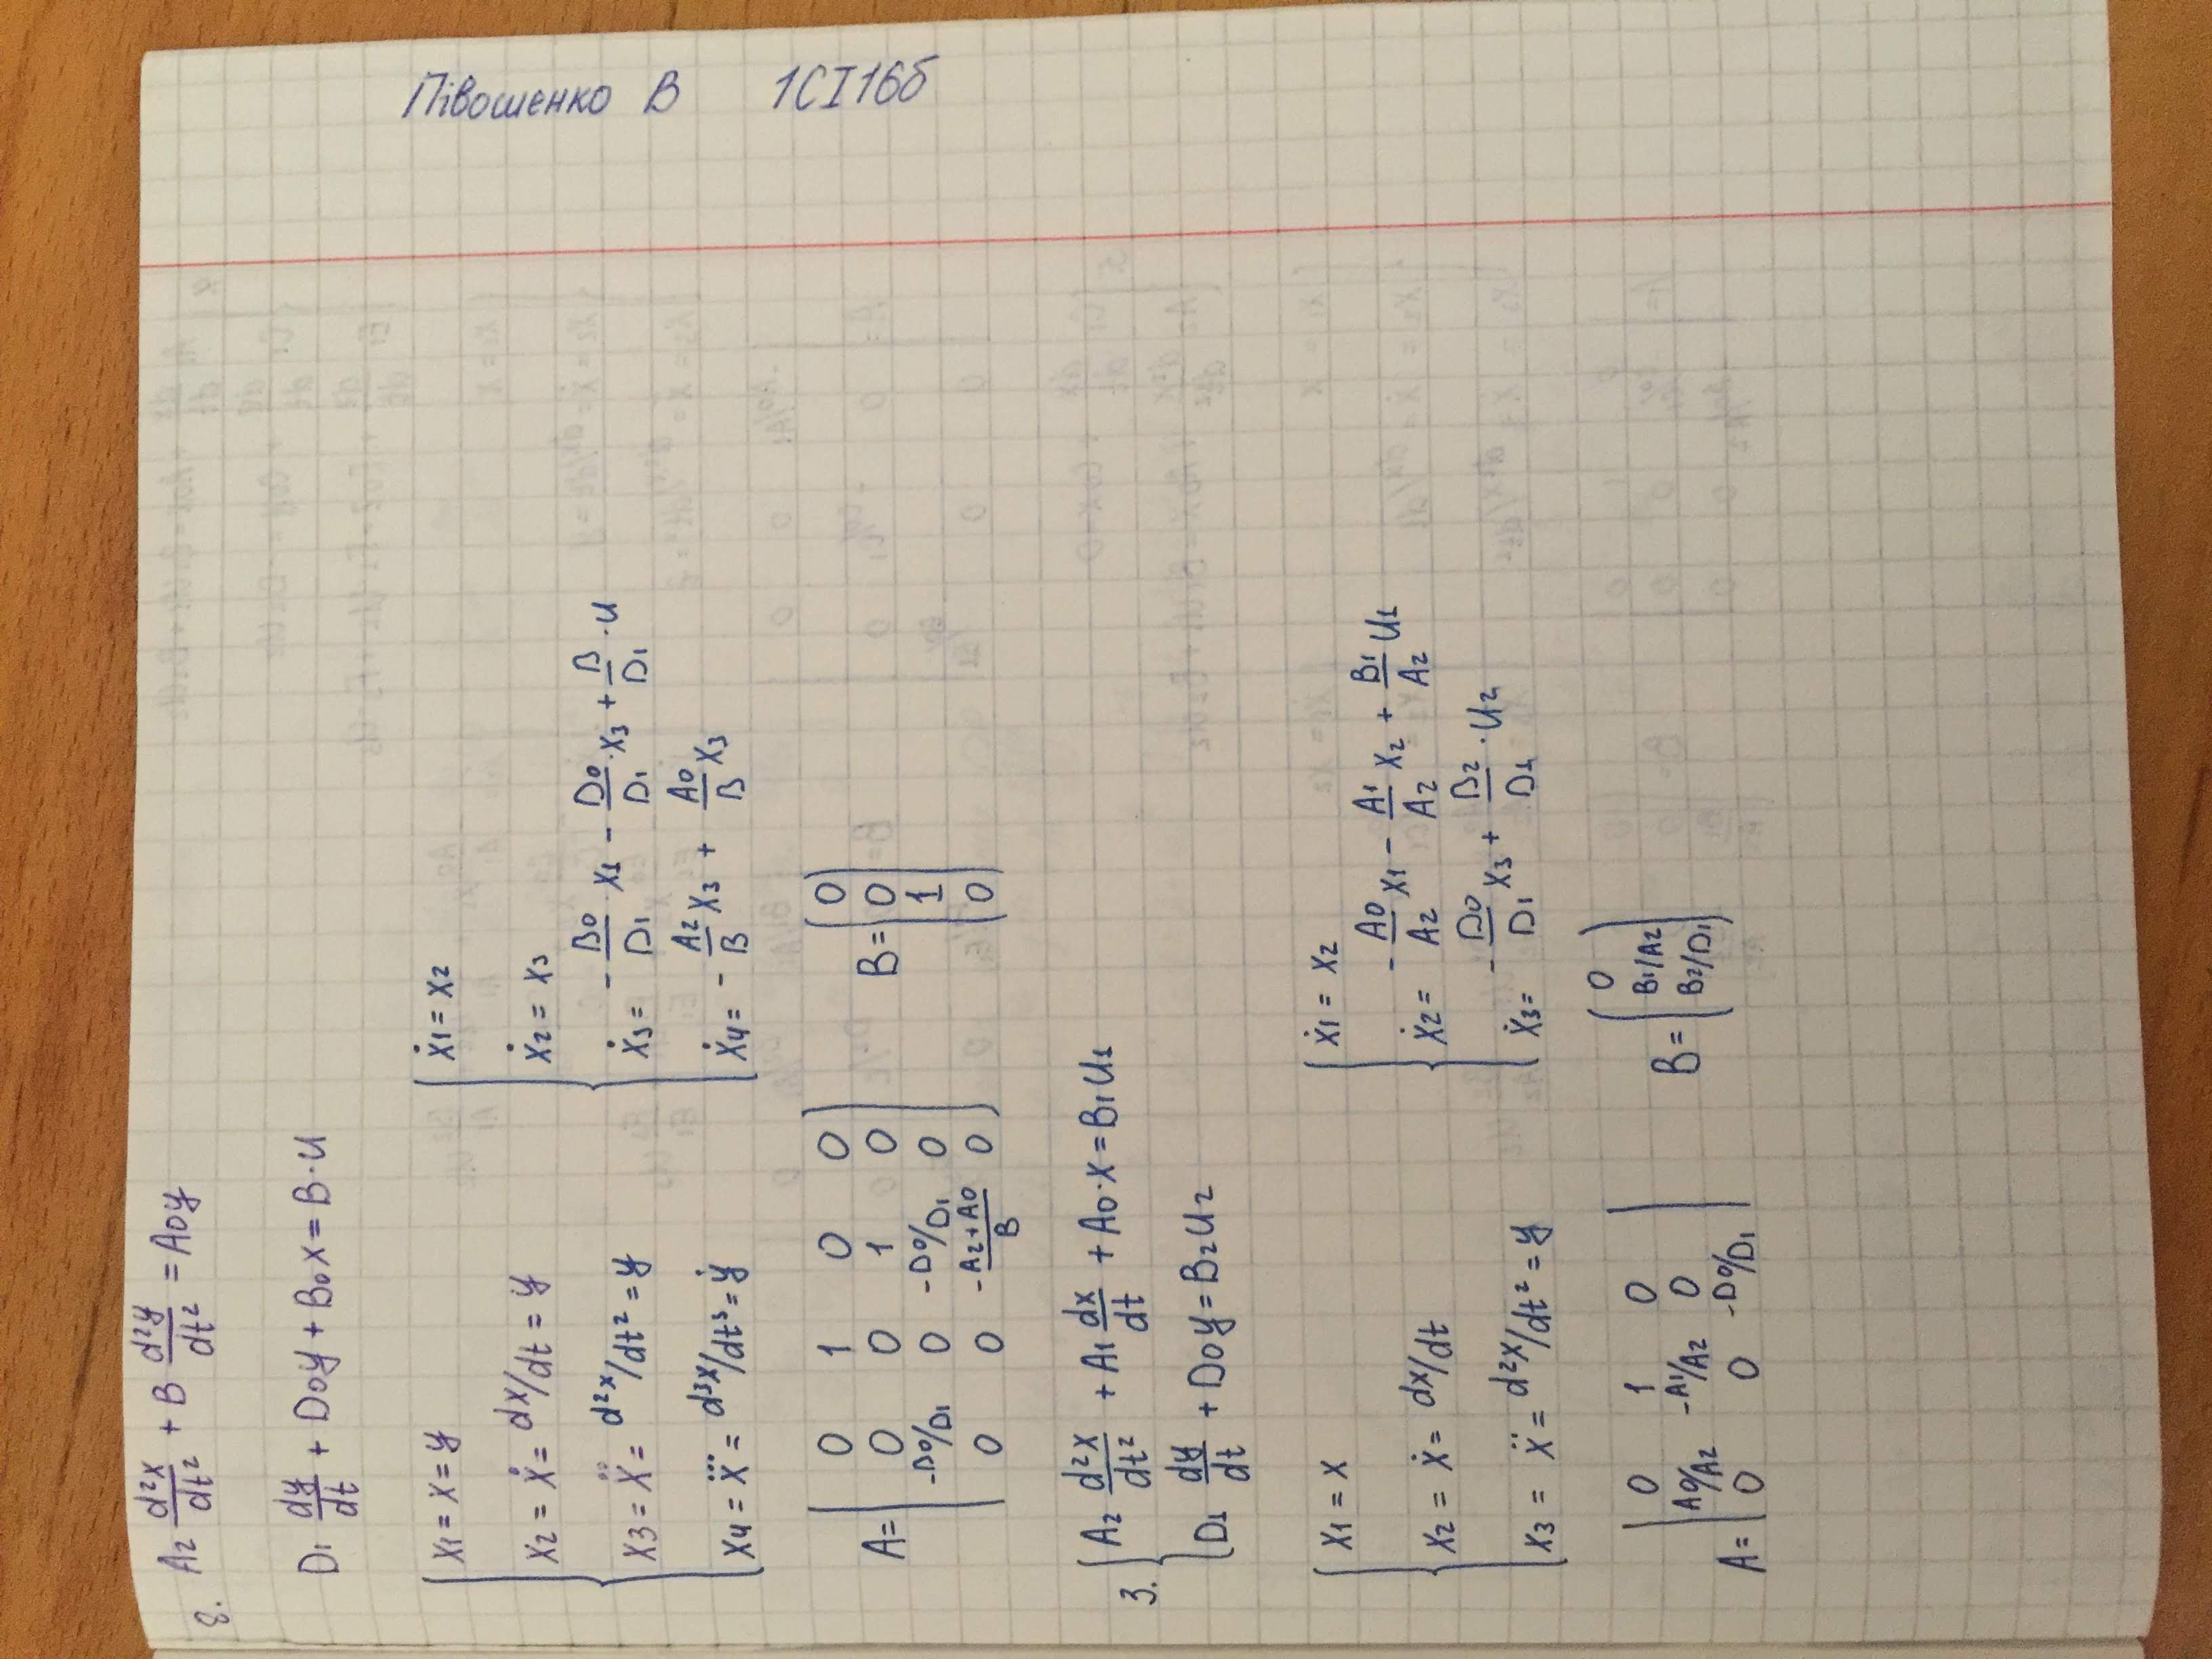 8. A2 d²x/dt² + B d²y/dt² = A0y
D1 dy/dt + D0y + B0x = B·U
x1 = x = y
x2 = ẋ = dx/dt = y
x3 = ẍ = d²x/dt² = y
x4 = x⃛ = d³x/dt³ = ẏ
ẋ1 = x2
ẋ2 = x3
ẋ3 = - B0/D1 · x1 - D0/D1 · x3 + B/D1 · U
ẋ4 = - A2/B x3 + A0/B x3
A =
0 1 0 0
0 0 1 0
-B0/D1 0 -D0/D1 0
0 0 -A2+A0/B 0
B =
0
0
1
0
3. A2 d²x/dt² + A1 dx/dt + A0·x = B1U1
D1 dy/dt + D0y = B2U2
x1 = x
x2 = ẋ = dx/dt
x3 = ẍ = d²x/dt² = y
ẋ1 = x2
ẋ2 = - A0/A2 x1 - A1/A2 x2 + B1/A2 U1
ẋ3 = - D0/D1 x3 + B2/D1 · U2
A =
0 1 0
A0/A2 -A1/A2 0
0 0 -D0/D1
B =
0
B1/A2
B2/D1
Півошенко В 1СІ16б